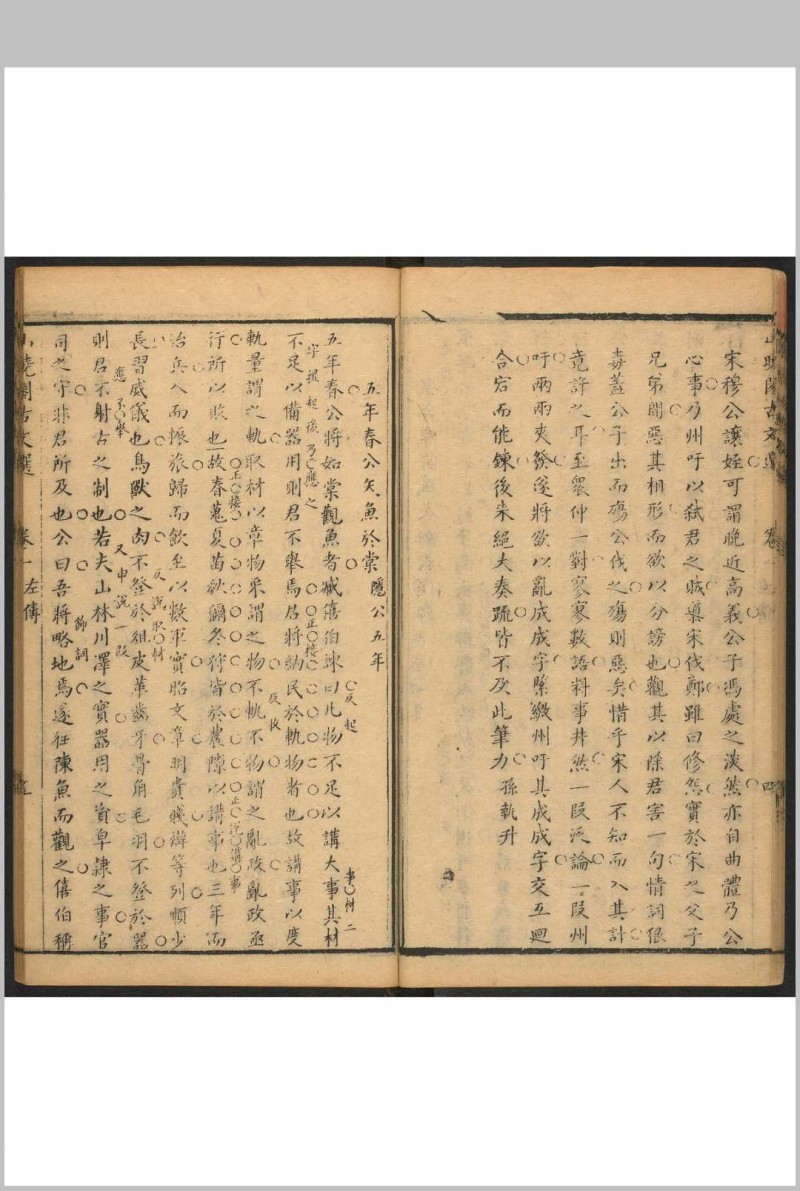 宋穆公讓姪可謂晚近高義公子馮處之淡然亦自曲體乃公
心事乃州吁以弒君之賊導宋伐鄭雖曰修怨實於宋之父子
兄弟間惡其相形而欲以分謗也觀其以除君害一句情詞狠
毒蓋公子出而殤公伐之殤則惡矣惜乎宋人不知而入其計
竟許之耳至衆仲一對寥寥數語料事井然一段泛論一段州
吁兩兩夾發遂將欲以亂成成字緊繳州吁其成成字交互迴
合宕而能鍊後来絕夫奏疏皆不及此筆力 孫執升
五年春公矢魚於棠 隱公五年
事 材 二
五年春公將如棠觀魚者臧僖伯諫曰凡物不足以講大事其材
字 提 起 後 乃 應 之
正 接
反 起
不足以備器用則君不舉焉君將納民於軌物者也故講事以度
軌量謂之軌取材以章物采謂之物不軌不物謂之亂政亂政亟
反 收
行所以敗也故春蒐夏苗秋獮冬狩皆於農隙以講事也三年而
正 接
正 說 講 事
治兵入而振旅歸而飲至以數軍實昭文章明貴賤辯等列順少
長習威儀也鳥獸之肉不登於俎皮革齒牙骨角毛羽不登於器
反 說 取 材
則君不射古之制也若夫山林川澤之實器用之資皁隸之事官
應 不 舉
又 申 說 一 段
司之守非君所及也公曰吾將略地焉遂往陳魚而觀之僖伯稱
飾 詞
山曉閣古文選 卷一 左傳
五